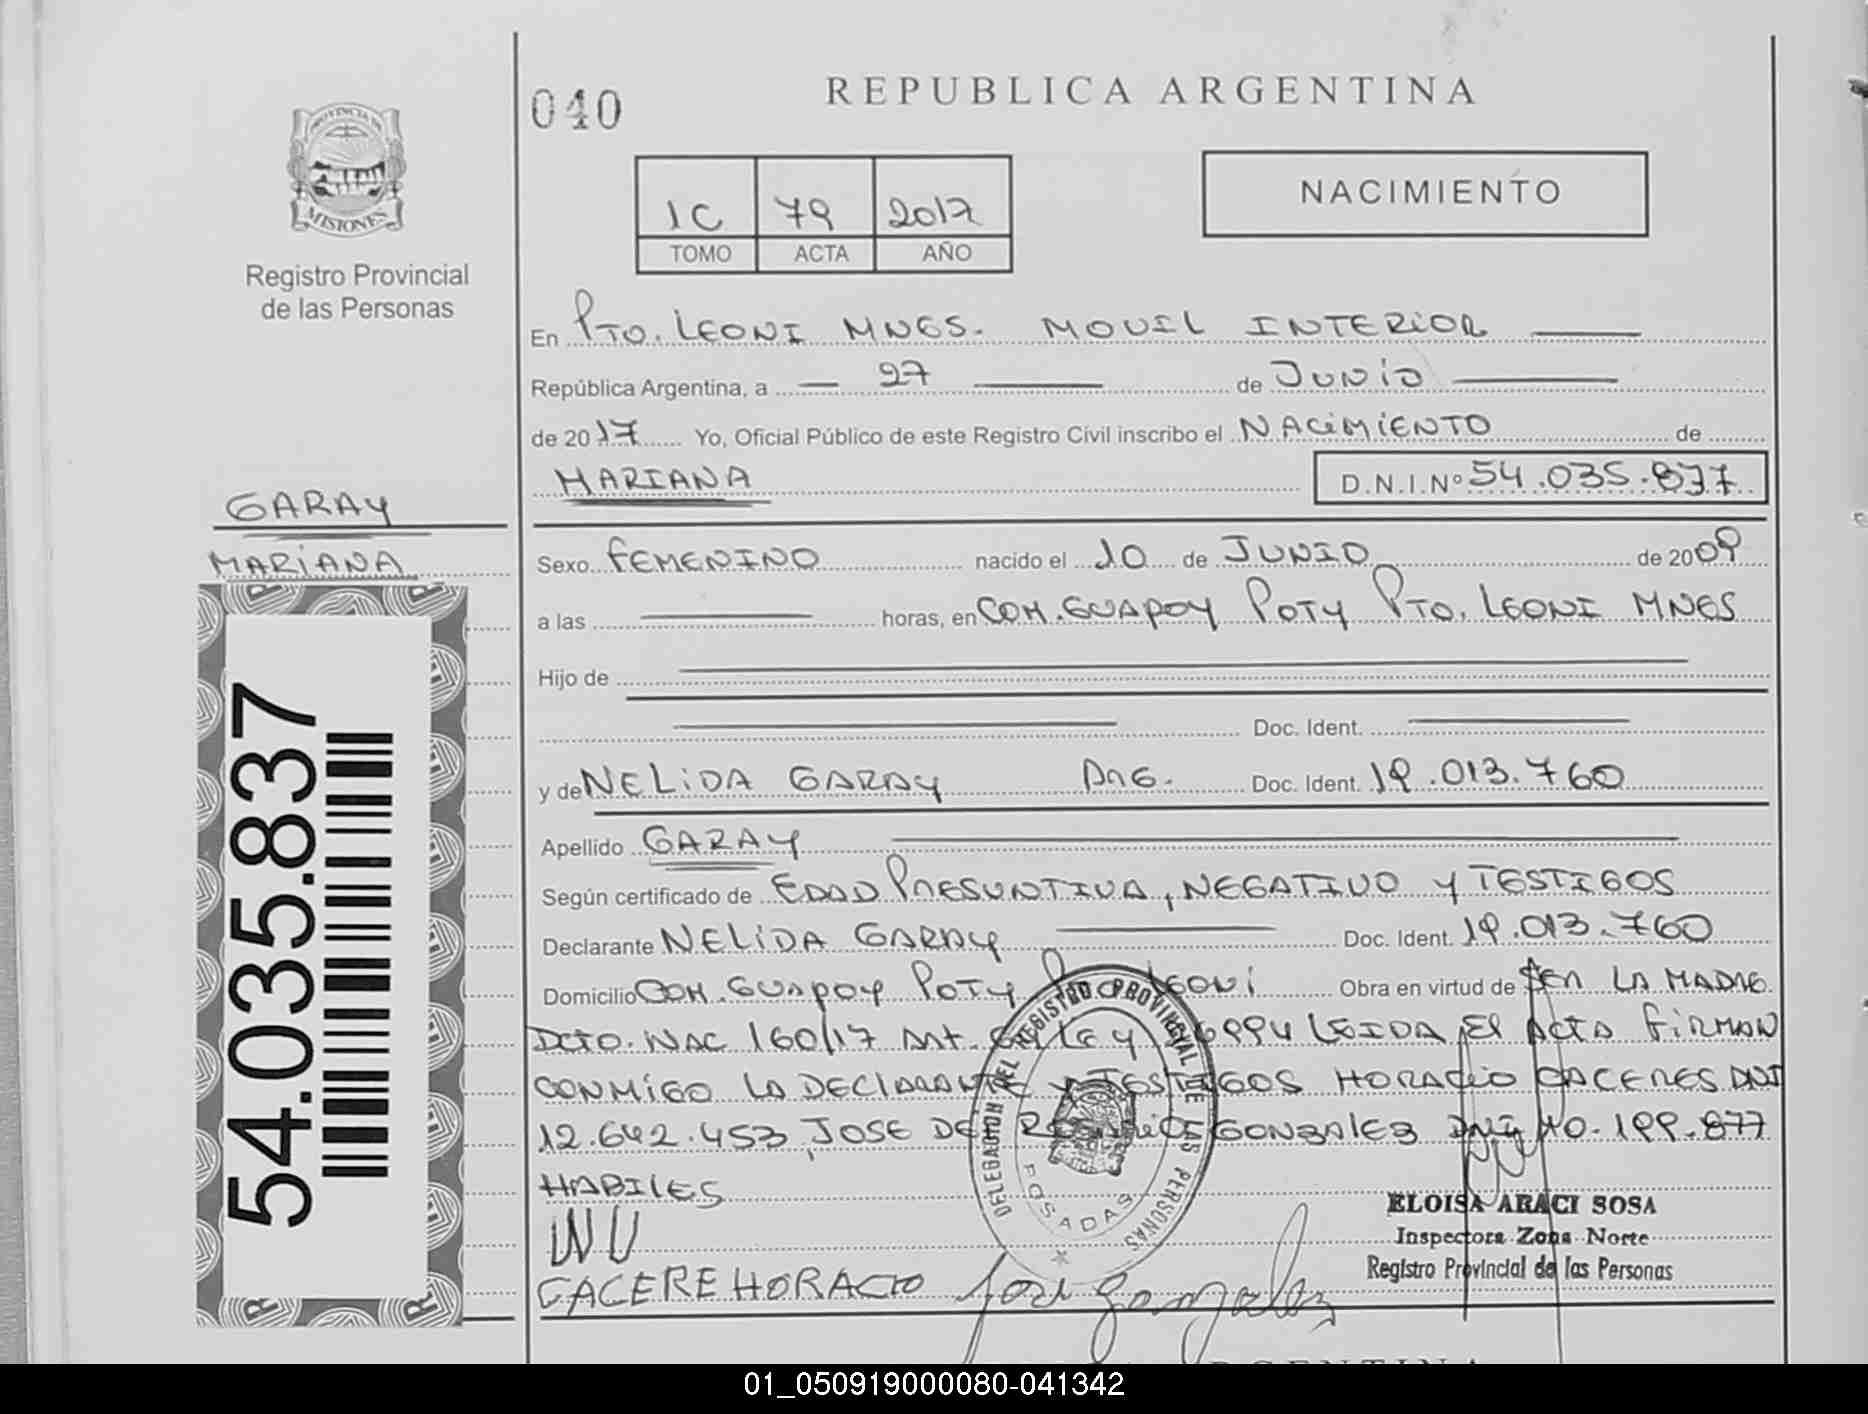 040
REPUBLICA ARGENTINA
PROVINCIA DE
MISIONES
Registro Provincial
de las Personas
1C 79 2017
TOMO ACTA AÑO
NACIMIENTO
En Pto. Leoni Mnes. Movil Interior
República Argentina, a 27 de Junio
de 2017 Yo, Oficial Público de este Registro Civil inscribo el Nacimiento de
MARIANA D.N.I.Nº 54.035.837
GARAY
MARIANA
54.035.837
Sexo Femenino nacido el 10 de Junio de 2009
a las horas, en Com. Guapoy Poty Pto. Leoni Mnes
Hijo de
Doc. Ident.
y de Nelida Garay Arg. Doc. Ident. 19.013.760
Apellido GARAY
Según certificado de Edad Presuntiva, Negativo y Testigos
Declarante Nelida Garay Doc. Ident. 19.013.760
Domicilio Com. Guapoy Poty Leoni Obra en virtud de Ser la Madre
Dcto. Nac 160/17 Art. Ley Leida el Acta Firman
conmigo la declarante y Testigos Horacio Caceres DNI
12.642.453, Jose Del Gonzalez DNI 10.199.877
Habiles
CACERE HORACIO Jose Gonzalez
DELEGACION DEL REGISTRO PROVINCIAL DE LAS PERSONAS
POSADAS
ELOISA ARACI SOSA
Inspectora Zona Norte
Registro Provincial de las Personas
01_050919000080-041342